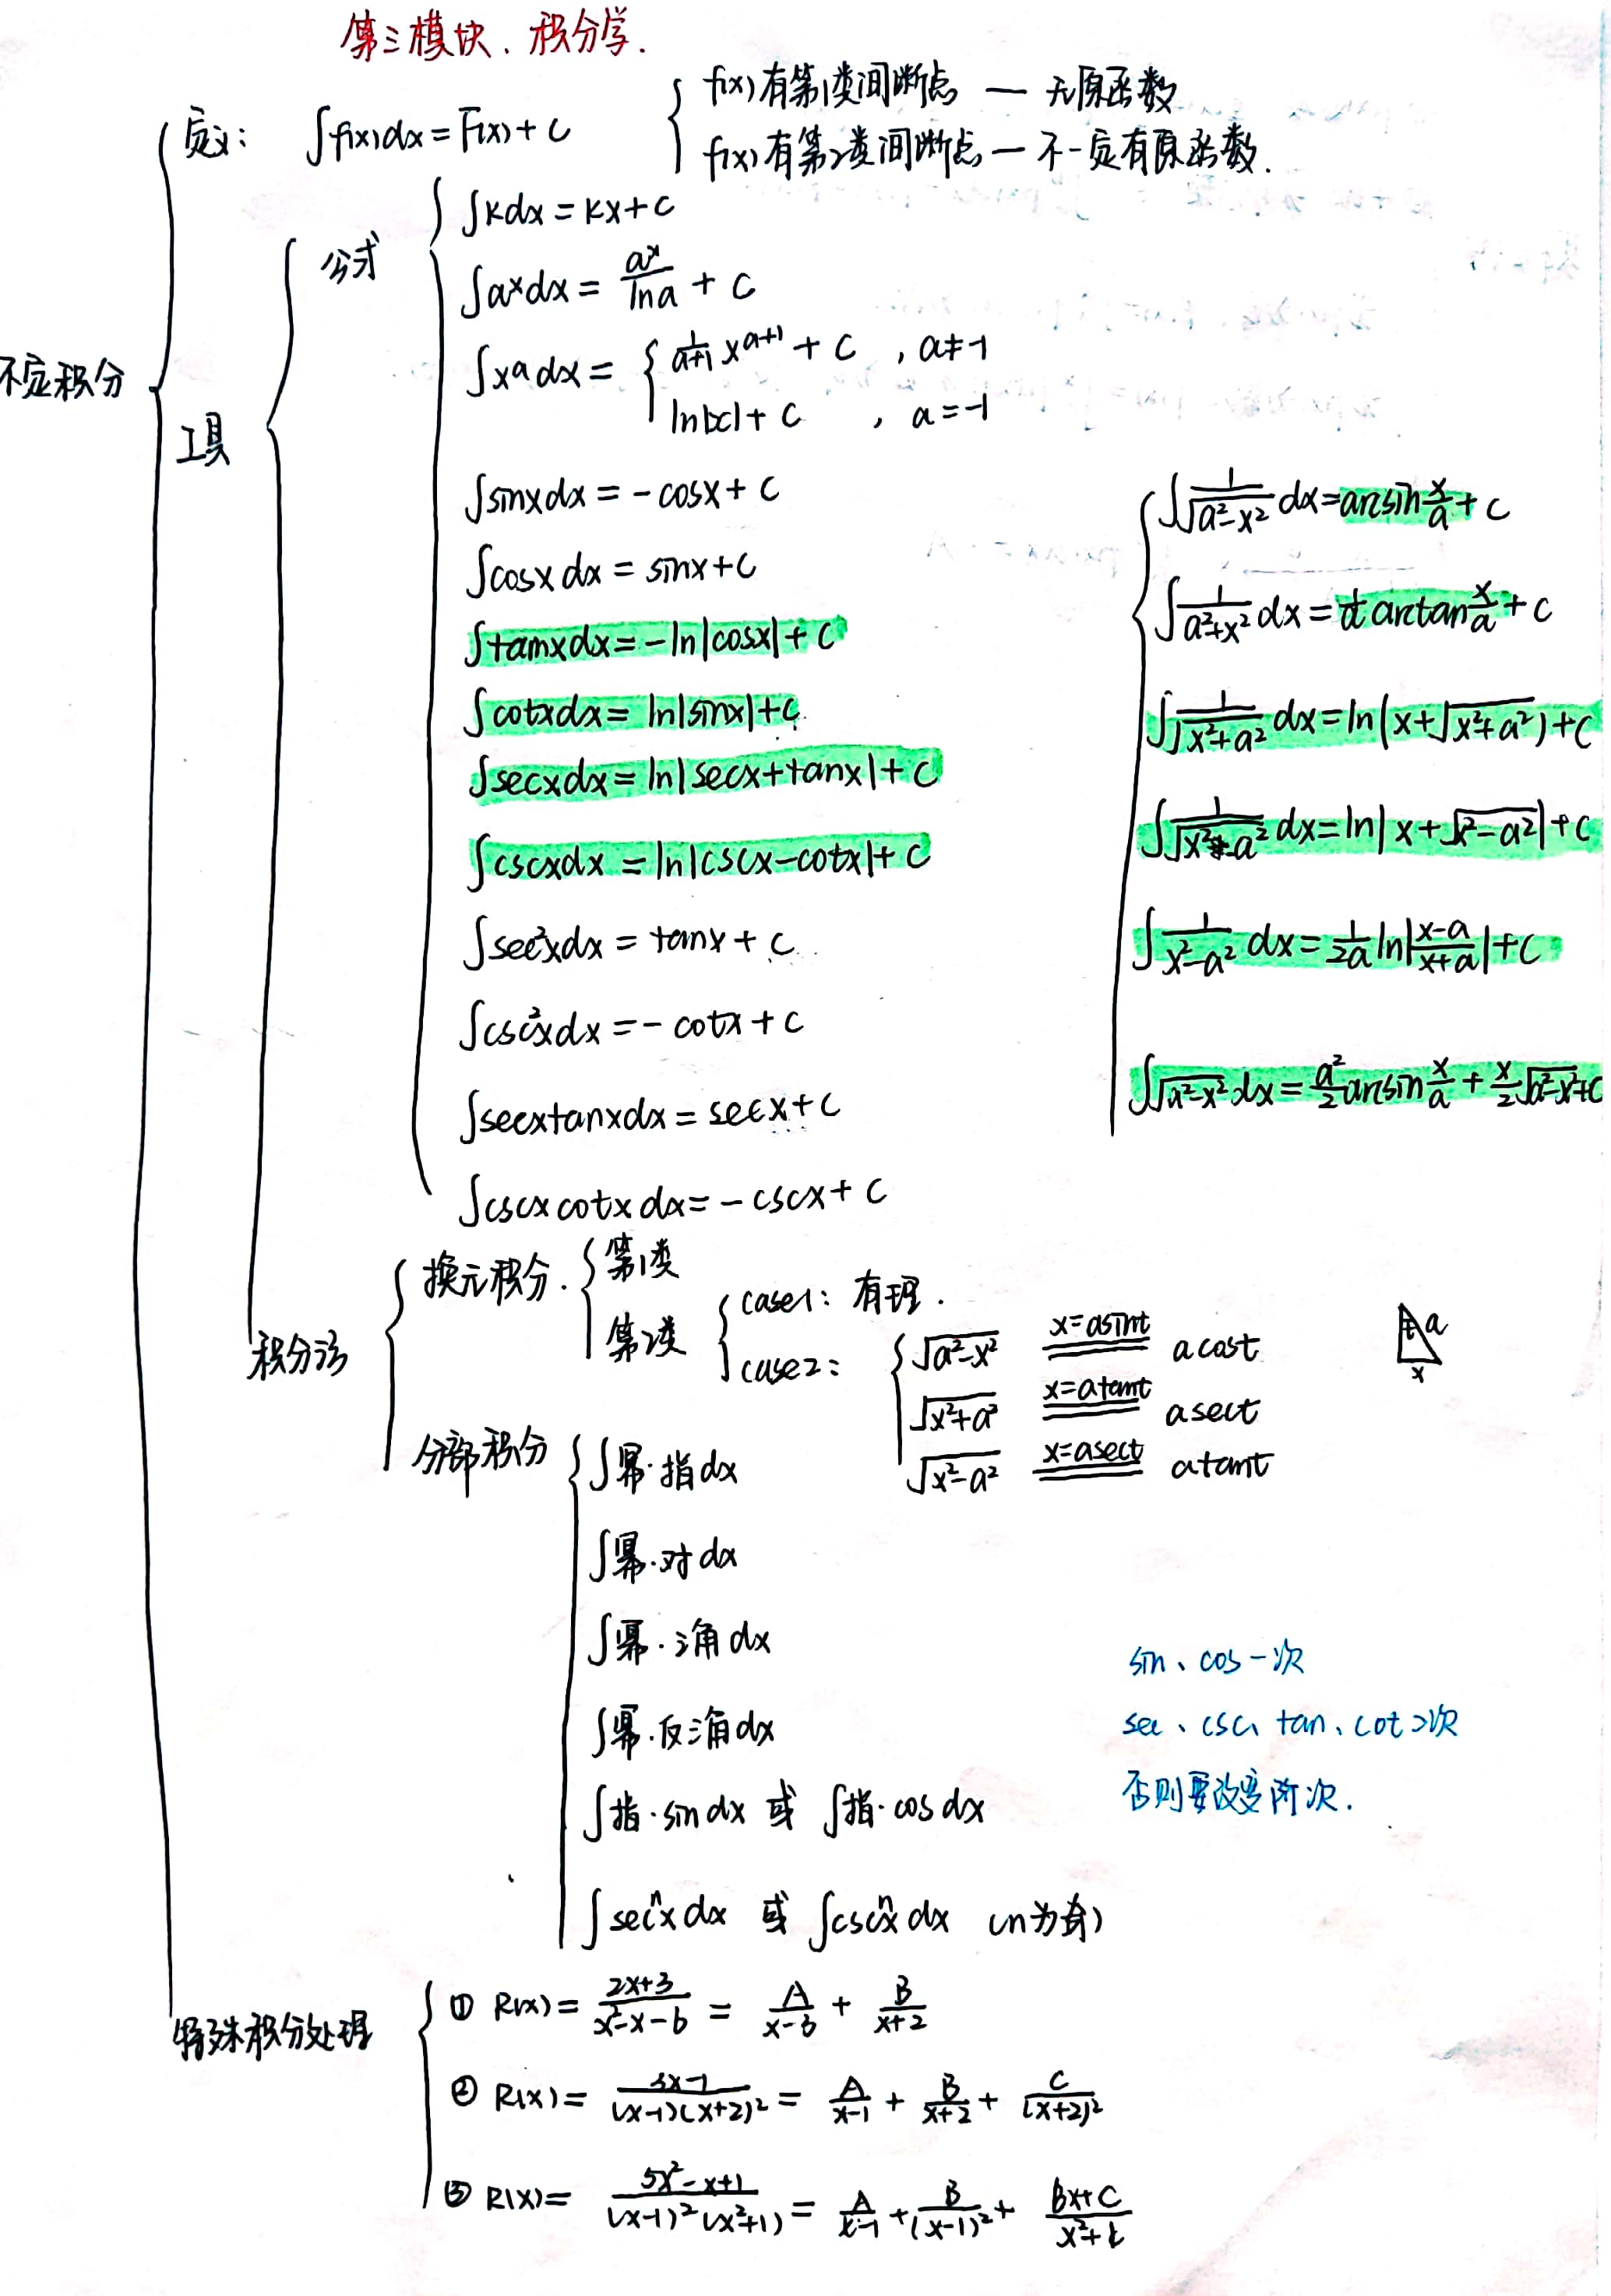 第三模块、积分学.
定义: ∫f(x)dx=F(x)+C
f(x)有第1类间断点 — 无原函数
f(x)有第2类间断点 — 不一定有原函数.
不定积分
工具
公式
∫kdx=kx+C
∫a^x dx = a^x/lna + C
∫x^a dx = { 1/(a+1) x^(a+1) + C , a≠-1
ln|x|+C , a=-1
∫sinxdx=-cosx+C
∫cosxdx=sinx+C
∫tanxdx=-ln|cosx|+C
∫cotxdx=ln|sinx|+C
∫secxdx=ln|secx+tanx|+C
∫cscxdx=ln|cscx-cotx|+C
∫sec²xdx=tanx+C
∫csc²xdx=-cotx+C
∫secxtanxdx=secx+C
∫cscxcotxdx=-cscx+C
∫1/√(a²-x²) dx=arcsin x/a+C
∫1/(a²+x²) dx=1/a arctan x/a+C
∫1/√(x²+a²) dx=ln(x+√(x²+a²))+C
∫1/√(x²-a²) dx=ln|x+√(x²-a²)|+C
∫1/(x²-a²) dx=1/(2a) ln|(x-a)/(x+a)|+C
∫√(a²-x²)dx=a²/2 arcsin x/a+x/2 √(a²-x²)+C
积分法
换元积分.
第1类
第2类
case1: 有理.
case2:
√(a²-x²) x=asint acost
√(x²+a²) x=atant asect
√(x²-a²) x=asect atant
t a
x
分部积分
∫幂·指dx
∫幂·对dx
∫幂·三角dx
∫幂·反三角dx
∫指·sindx 或 ∫指·cosdx
∫secⁿxdx 或 ∫cscⁿxdx (n为奇)
sin、cos一次
sec、csc、tan、cot 2次
否则要改变阶次.
特殊积分处理
① R(x)=(2x+3)/(x²-x-6)=A/(x-3)+B/(x+2)
② R(x)=(3x-1)/((x-1)(x+2)²)=A/(x-1)+B/(x+2)+C/(x+2)²
③ R(x)=(5x²-x+1)/((x-1)²(x²+1))=A/(x-1)+B/(x-1)²+(Bx+C)/(x²+1)